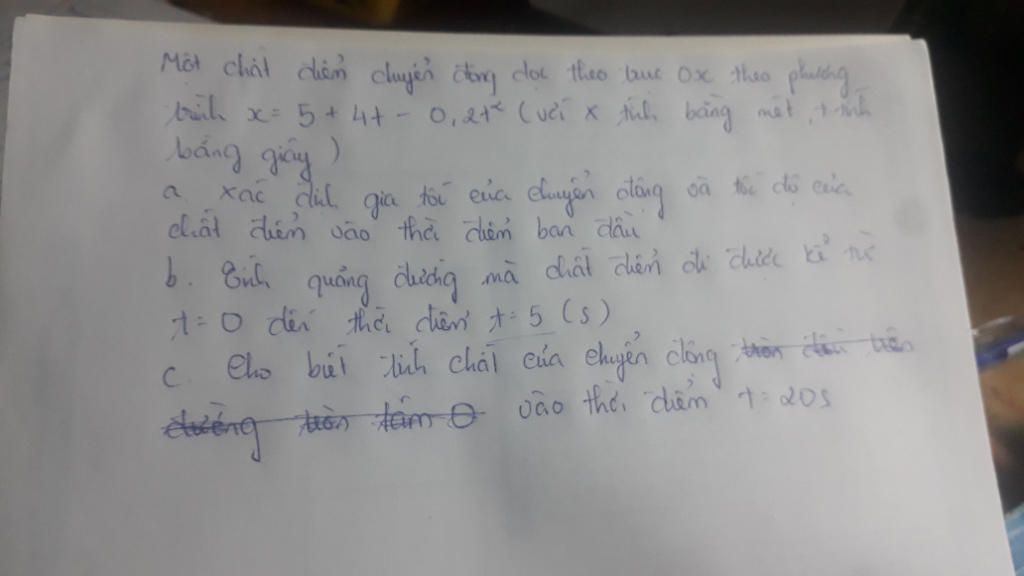 Một chất điểm chuyển động dọc theo trục Ox theo phương
trình x = 5 + 4t - 0,2t² (với x tính bằng mét, t tính
bằng giây)
a. xác định gia tốc của chuyển động và tốc độ của
chất điểm vào thời điểm ban đầu
b. Tính quảng đường mà chất điểm đi được kể từ
t = 0 đến thời điểm t = 5 (s)
c. Cho biết tính chất của chuyển động tròn
đường tròn tâm O vào thời điểm t = 20s